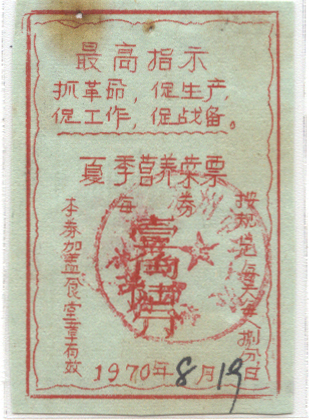 最高指示
抓革命，促生产，
促工作，促战备。
夏季营养菜票
每券
壹角伍分
本券加盖食堂章有效
1970年8月19日